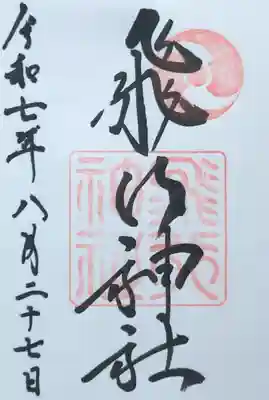 飛行神社
令和七年八月二十七日
飛行
神社